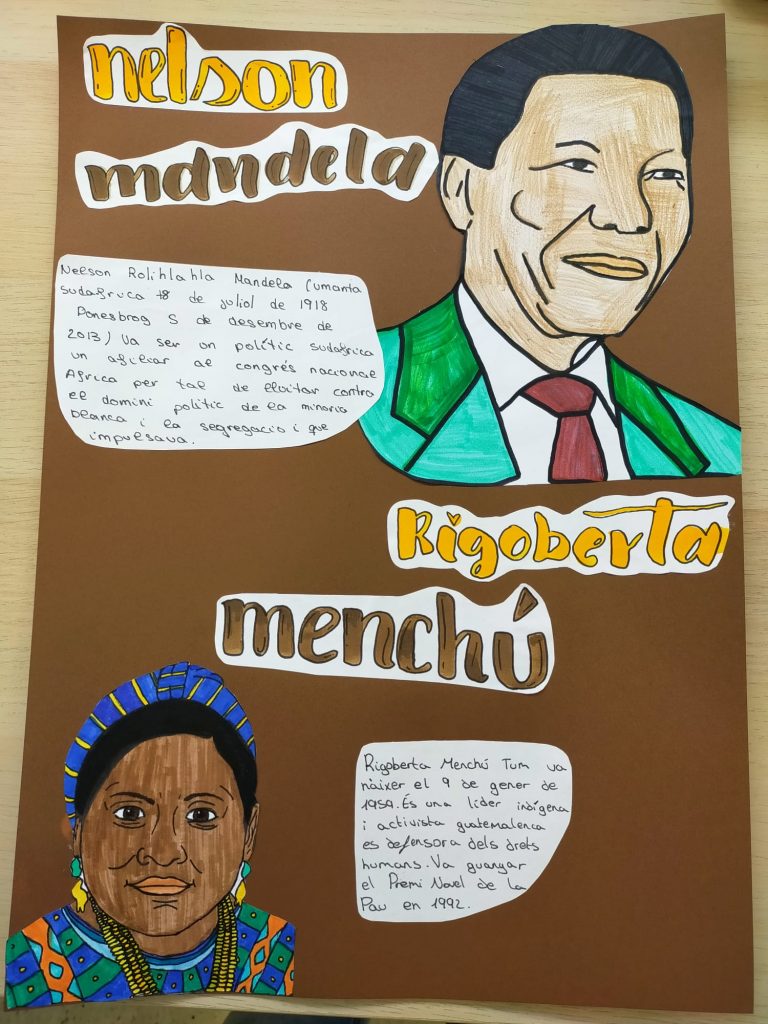 nelson
mandela
Nelson Rolihlahla Mandela (umanta
sudafruca 18 de juliol de 1918
Ponesbrog 5 de desembre de
2013) Va ser un polític sudafrica
un afiliar al congrés nacional
Africa per tal de lluitar contra
el domini polític de la minoria
blanca i la segregacio i que
impulsava.
Rigoberta
menchú
Rigoberta Menchú Tum va
nàixer el 9 de gener de
1959. És una líder indígena
i activista guatemalenca
es defensora dels drets
humans. Va guanyar
el Premi Novel de la
Pau en 1992.